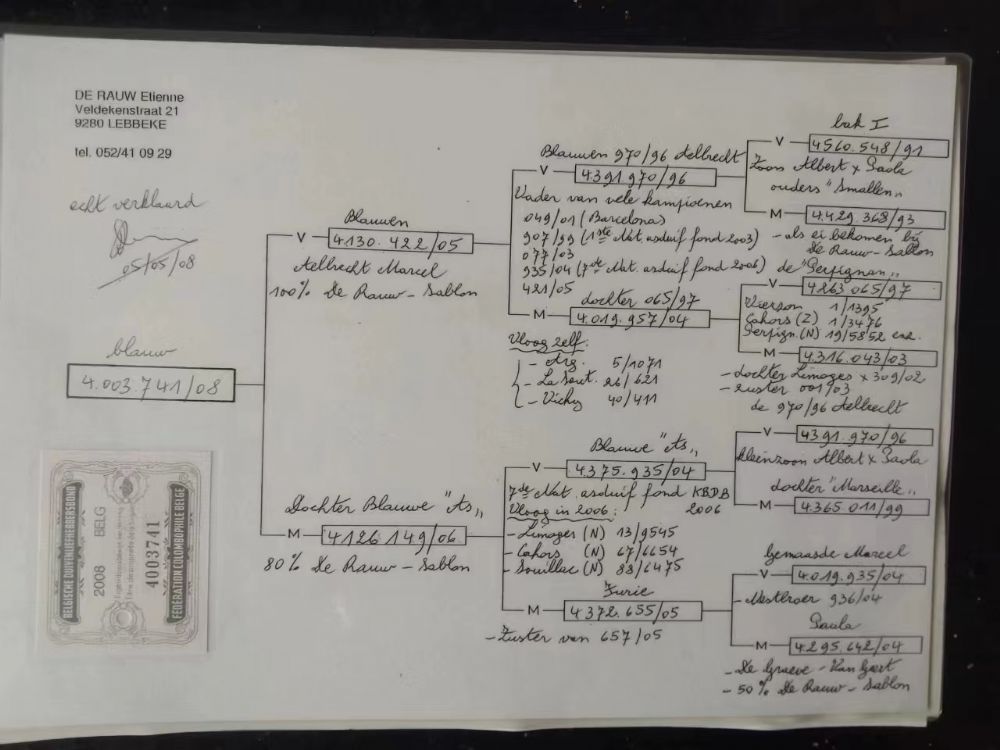 DE RAUW Etienne
Veldekenstraat 21
9280 LEBBEKE
tel. 052/41 09 29
echt verklaard
05/05/08
blauw
4.003.741/08
BELGISCHE DUIVENLIEFHEBBERSBOND
2008 BELG
4003741
FEDERATION COLOMBOPHILE BELGE
Blauwen
V 4130.422/05
Aelbrecht Marcel
100% De Rauw-Sablon
Dochter Blauwe "As"
M 4126.149/06
80% De Rauw-Sablon
Blauwen 970/96 Aelbrecht
V 4391.970/96
Vader van vele kampioenen
049/01 (Barcelona)
907/99 (1ste Nat. asduif fond 2003)
077/03
935/04 (7de Nat. asduif fond 2006)
421/05
dochter 065/97
M 4.019.957/04
Vloog zelf:
- Arg. 5/1071
- La Sout. 26/621
- Vichy 40/411
Blauwe "As"
V 4.375.935/04
7de Nat. asduif fond KBDB
2006
Vloog in 2006:
- Limoges (N) 13/9545
- Cahors (N) 67/6654
- Souillac (N) 83/6475
Furie
M 4.372.655/05
- Zuster van 657/05
bak I
V 4560.548/91
Zoon Albert x Paola
ouders "Smallen"
M 4.429.368/93
- als ei bekomen bij
De Rauw-Sablon
de "Perpignan"
V 4263.065/97
Vierzon 1/1395
Cahors (Z) 1/3476
Perpign. (N) 19/5852 enz.
M 4.316.043/03
- dochter Limoges x 309/02
- zuster 001/03
de 970/96 Aelbrecht
V 4391.970/96
kleinzoon Albert x Paola
dochter "Marseille"
M 4.365.011/99
Gemaasde Marcel
V 4.019.935/04
- Nestbroer 936/04
Paula
M 4.295.642/04
- De Graeve - Van Gaert
- 50% De Rauw-Sablon